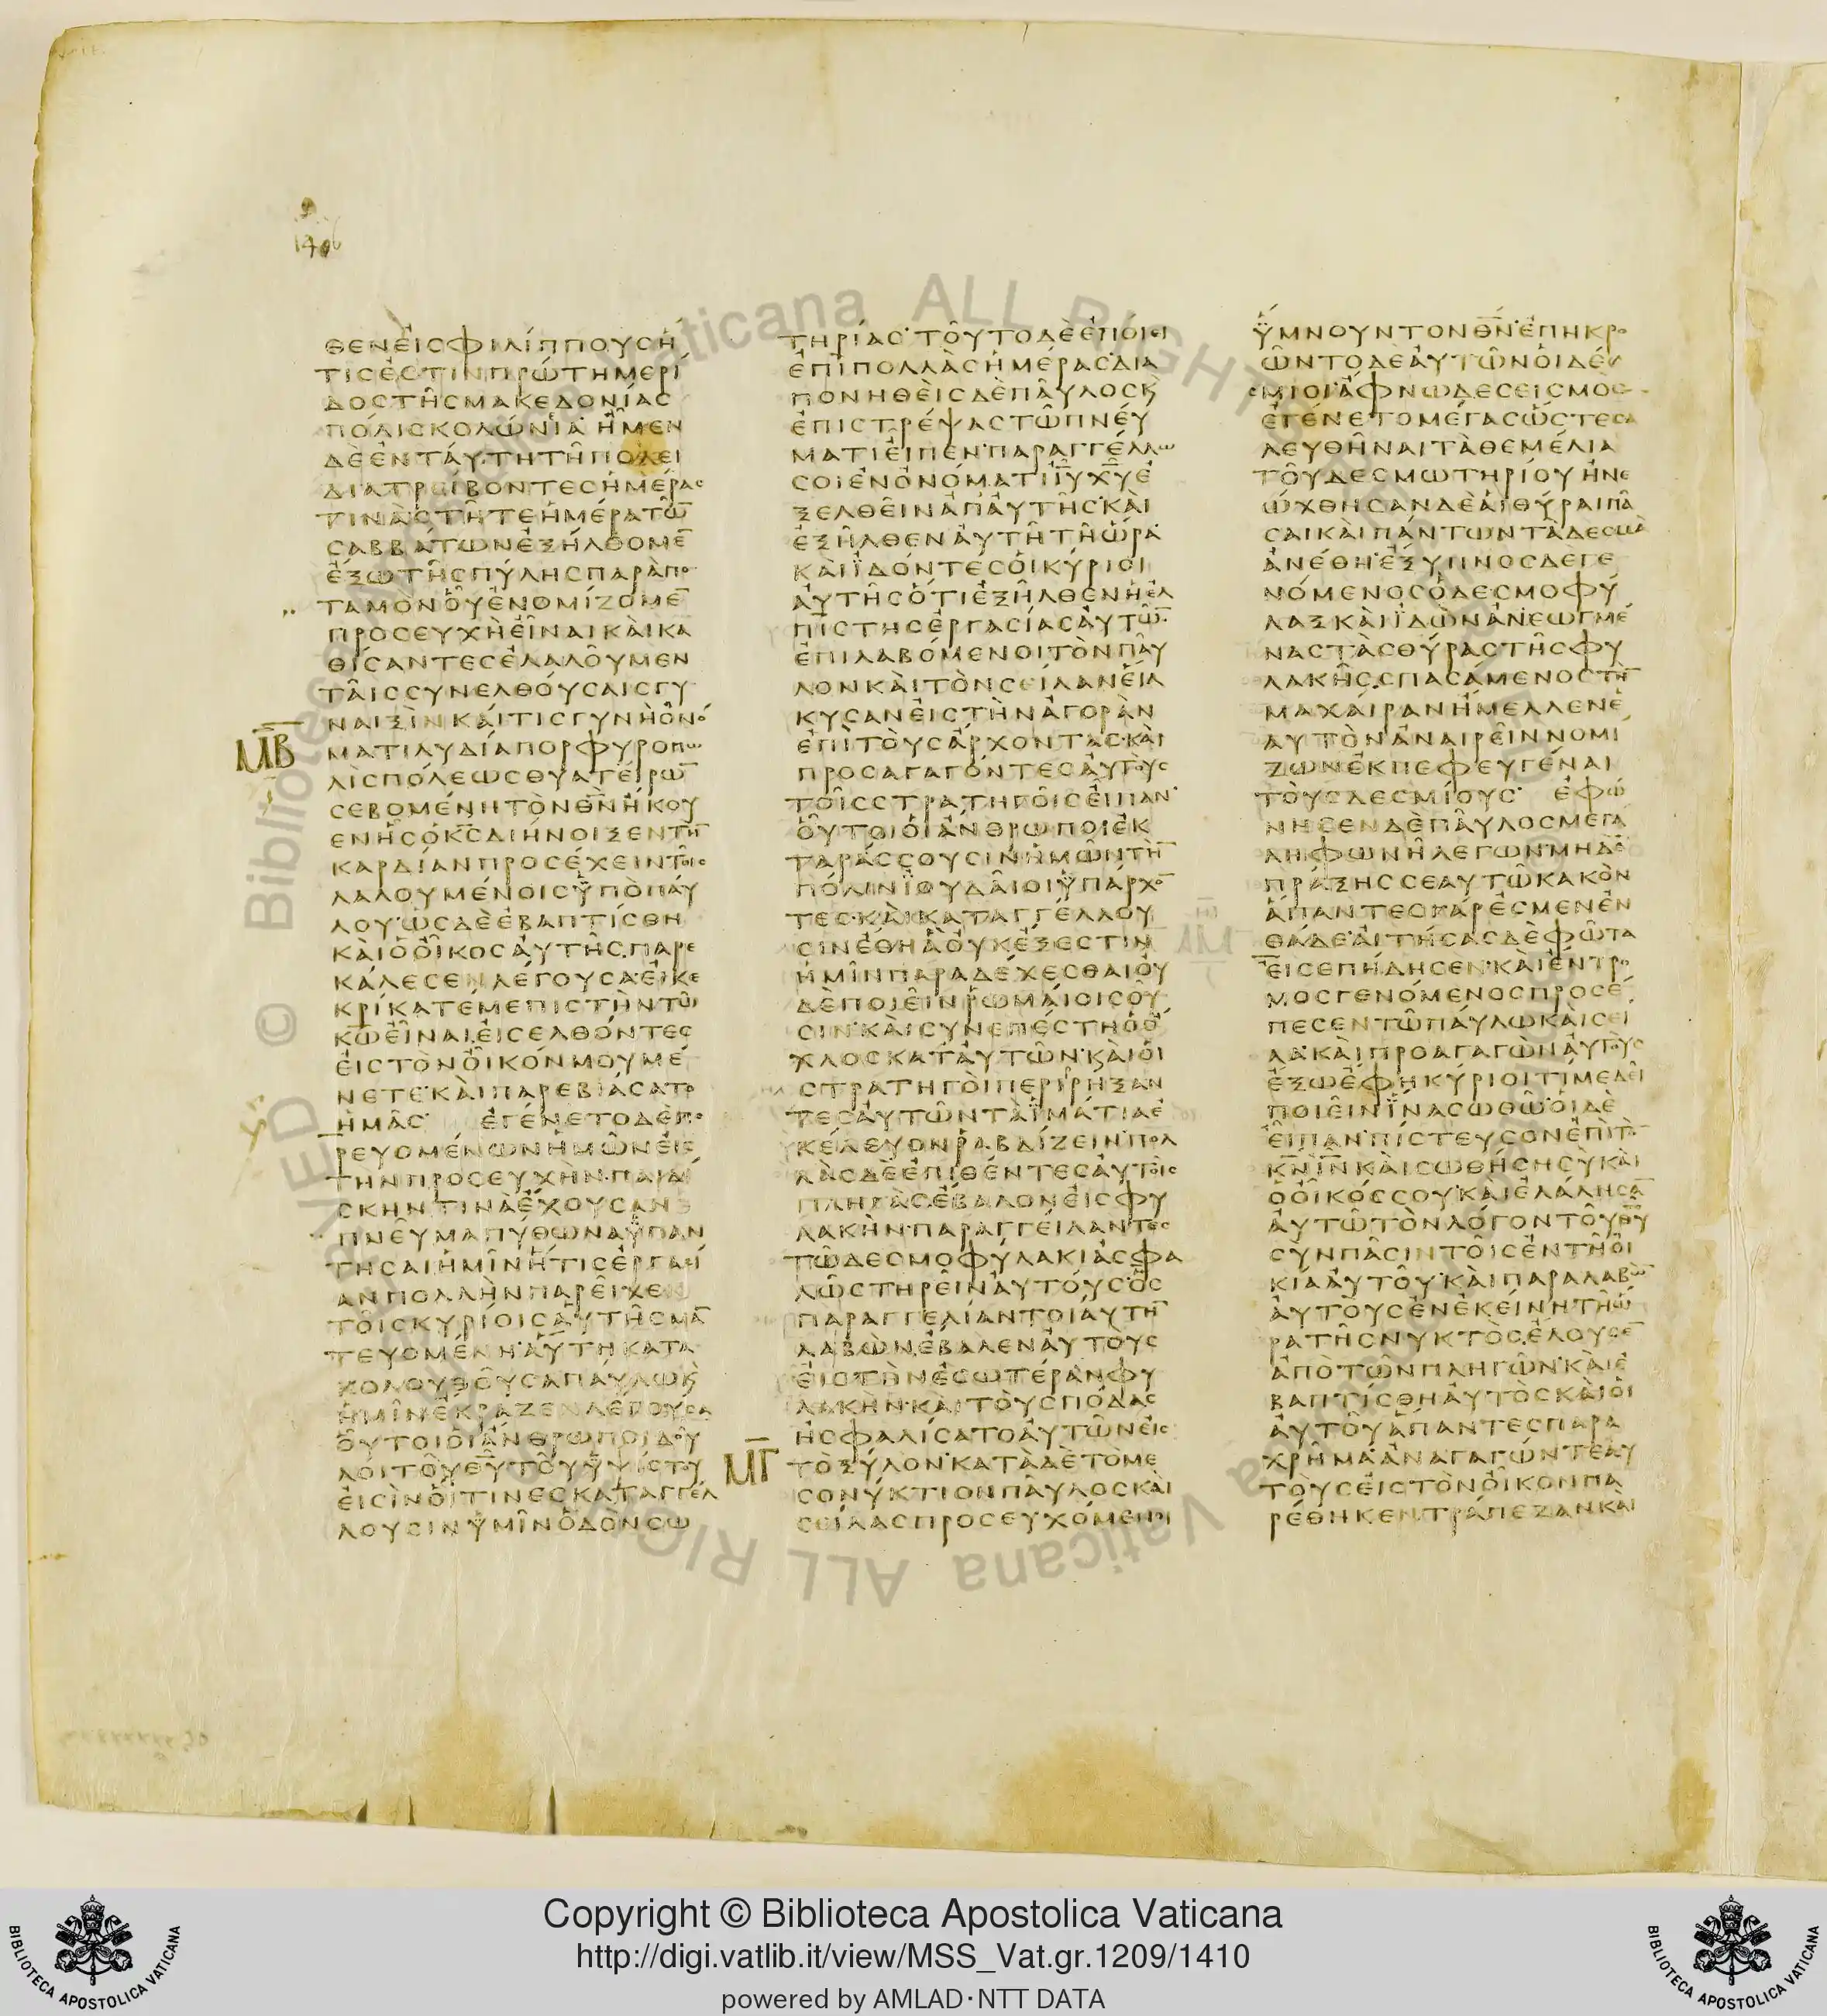 1406
ΘΕΝΕΙΣΦΙΛΙΠΠΟΥΣΗ
ΤΙΣΕΣΤΙΝΠΡΩΤΗΜΕΡΙ
ΔΟΣΤΗΣΜΑΚΕΔΟΝΙΑΣ
ΠΟΛΙΣΚΟΛΩΝΙΑ·ΗΜΕΝ
ΔΕΕΝΤΑΥΤΗΤΗΠΟΛΕΙ
ΔΙΑΤΡΕΙΒΟΝΤΕΣΗΜΕΡΑΣ
ΤΙΝΑΣΤΗΤΕΗΜΕΡΑΤΩ̅
ΣΑΒΒΑΤΩΝΕΞΗΛΘΟΜΕ̅
ΕΞΩΤΗΣΠΥΛΗΣΠΑΡΑΠΟ
ΤΑΜΟΝΟΥΕΝΟΜΙΖΟΜΕ̅
ΠΡΟΣΕΥΧΗΕΙΝΑΙΚΑΙΚΑ
ΘΙΣΑΝΤΕΣΕΛΑΛΟΥΜΕΝ
ΤΑΙΣΣΥΝΕΛΘΟΥΣΑΙΣΓΥ
ΝΑΙΞΙΝΚΑΙΤΙΣΓΥΝΗΟΝΟ
ΜΒ
ΜΑΤΙΛΥΔΙΑΠΟΡΦΥΡΟΠΩ
ΛΙΣΠΟΛΕΩΣΘΥΑΤΕΙΡΩ̅
ΣΕΒΟΜΕΝΗΤΟΝΘ̅Ν̅ΗΚΟΥ
ΕΝΗΣΟΚ̅Σ̅ΔΙΗΝΟΙΞΕΝΤΗ̅
ΚΑΡΔΙΑΝΠΡΟΣΕΧΕΙΝΤΟΙΣ
ΛΑΛΟΥΜΕΝΟΙΣΫΠΟΠΑΥ
ΛΟΥ·ΩΣΔΕΕΒΑΠΤΙΣΘΗ
ΚΑΙΟΟΙΚΟΣΑΥΤΗΣΠΑΡΕ
ΚΑΛΕΣΕΝΛΕΓΟΥΣΑ·ΕΙΚΕ
ΚΡΙΚΑΤΕΜΕΠΙΣΤΗΝΤΩ
Κ̅Ω̅ΕΙΝΑΙΕΙΣΕΛΘΟΝΤΕΣ
ΕΙΣΤΟΝΟΙΚΟΝΜΟΥΜΕ
ΝΕΤΕ·ΚΑΙΠΑΡΕΒΙΑΣΑΤΟ
ΗΜΑΣ· ΕΓΕΝΕΤΟΔΕΠΟ
ΡΕΥΟΜΕΝΩΝΗΜΩΝΕΙΣ
ΤΗΝΠΡΟΣΕΥΧΗΝ·ΠΑΙΔΙ
ΣΚΗΝΤΙΝΑΕΧΟΥΣΑΝ
ΠΝΕΥΜΑΠΥΘΩΝΑΫΠΑΝ
ΤΗΣΑΙΗΜΙΝΗΤΙΣΕΡΓΑΣΙ
ΑΝΠΟΛΛΗΝΠΑΡΕΙΧΕ
ΤΟΙΣΚΥΡΙΟΙΣΑΥΤΗΣΜΑ̅
ΤΕΥΟΜΕΝΗ·ΑΥΤΗΚΑΤΑ
ΚΟΛΟΥΘΟΥΣΑΠΑΥΛΩΚ
ΗΜΙΝΕΚΡΑΖΕΝΛΕΓΟΥΣΑ
ΟΥΤΟΙΟΙΑΝΘΡΩΠΟΙΔΟΥ
ΛΟΙΤΟΥΘ̅Υ̅ΤΟΥΫΨΙΣΤΟΥ
ΕΙΣΙΝΟΙΤΙΝΕΣΚΑΤΑΓΓΕΛ
ΛΟΥΣΙΝΫΜΙΝΟΔΟΝΣΩ
ΤΗΡΙΑΣ·ΤΟΥΤΟΔΕΕΠΟΙΕΙ
ΕΠΙΠΟΛΛΑΣΗΜΕΡΑΣ·ΔΙΑ
ΠΟΝΗΘΕΙΣΔΕΠΑΥΛΟΣΚ
ΕΠΙΣΤΡΕΨΑΣΤΩΠΝΕΥ
ΜΑΤΙΕΙΠΕΝ·ΠΑΡΑΓΓΕΛΛΩ
ΣΟΙΕΝΟΝΟΜΑΤΙΙ̅Υ̅Χ̅Υ̅Ε
ΞΕΛΘΕΙΝΑΠΑΥΤΗΣ·ΚΑΙ
ΕΞΗΛΘΕΝΑΥΤΗΤΗΩΡΑ
ΚΑΙΪΔΟΝΤΕΣΟΙΚΥΡΙΟΙ
ΑΥΤΗΣΟΤΙΕΞΗΛΘΕΝΗΕΛ
ΠΙΣΤΗΣΕΡΓΑΣΙΑΣΑΥΤΩ̅
ΕΠΙΛΑΒΟΜΕΝΟΙΤΟΝΠΑΥ
ΛΟΝΚΑΙΤΟΝΣΕΙΛΑΝΕΙΛ
ΚΥΣΑΝΕΙΣΤΗΝΑΓΟΡΑΝ
ΕΠΙΤΟΥΣΑΡΧΟΝΤΑΣ·ΚΑΙ
ΠΡΟΣΑΓΑΓΟΝΤΕΣΑΥΤΟΥΣ
ΤΟΙΣΣΤΡΑΤΗΓΟΙΣΕΙΠΑΝ·
ΟΥΤΟΙΟΙΑΝΘΡΩΠΟΙΕΚ
ΤΑΡΑΣΣΟΥΣΙΝΗΜΩΝΤΗ̅
ΠΟΛΙΝΪΟΥΔΑΙΟΙΫΠΑΡΧΟ̅
ΤΕΣ·ΚΑΙΚΑΤΑΓΓΕΛΛΟΥ
ΣΙΝΕΘΗΑΟΥΚΕΞΕΣΤΙΝ
ΗΜΙΝΠΑΡΑΔΕΧΕΣΘΑΙΟΥ
ΔΕΠΟΙΕΙΝΡΩΜΑΙΟΙΣΟΥ
ΣΙΝ·ΚΑΙΣΥΝΕΠΕΣΤΗΟΟ
ΧΛΟΣΚΑΤΑΥΤΩΝ·ΚΑΙΟΙ
ΣΤΡΑΤΗΓΟΙΠΕΡΙΡΗΞΑΝ
ΤΕΣΑΥΤΩΝΤΑΪΜΑΤΙΑΕ
ΚΕΛΕΥΟΝΡΑΒΔΙΖΕΙΝ·ΠΟΛ
ΛΑΣΔΕΕΠΙΘΕΝΤΕΣΑΥΤΟΙΣ
ΠΛΗΓΑΣΕΒΑΛΟΝΕΙΣΦΥ
ΛΑΚΗΝ·ΠΑΡΑΓΓΕΙΛΑΝΤΕΣ
ΤΩΔΕΣΜΟΦΥΛΑΚΙΑΣΦΑ
ΛΩΣΤΗΡΕΙΝΑΥΤΟΥΣ·ΟΣ
ΠΑΡΑΓΓΕΛΙΑΝΤΟΙΑΥΤΗ̅
ΛΑΒΩΝΕΒΑΛΕΝΑΥΤΟΥΣ
ΕΙΣΤΗΝΕΣΩΤΕΡΑΝΦΥ
ΛΑΚΗΝ·ΚΑΙΤΟΥΣΠΟΔΑΣ
ΗΣΦΑΛΙΣΑΤΟΑΥΤΩΝΕΙΣ
ΜΓ
ΤΟΞΥΛΟΝ·ΚΑΤΑΔΕΤΟΜΕ
ΣΟΝΥΚΤΙΟΝΠΑΥΛΟΣΚΑΙ
ΣΕΙΛΑΣΠΡΟΣΕΥΧΟΜΕΝΟΙ
ΫΜΝΟΥΝΤΟΝΘ̅Ν̅·ΕΠΗΚΡΟ
ΩΝΤΟΔΕΑΥΤΩΝΟΙΔΕΣ
ΜΙΟΙ·ΑΦΝΩΔΕΣΕΙΣΜΟΣ
ΕΓΕΝΕΤΟΜΕΓΑΣΩΣΤΕΣΑ
ΛΕΥΘΗΝΑΙΤΑΘΕΜΕΛΙΑ
ΤΟΥΔΕΣΜΩΤΗΡΙΟΥΗΝΕ
ΩΧΘΗΣΑΝΔΕΑΙΘΥΡΑΙΠΑ
ΣΑΙΚΑΙΠΑΝΤΩΝΤΑΔΕΣΜΑ
ΑΝΕΘΗ·ΕΞΥΠΝΟΣΔΕΓΕ
ΝΟΜΕΝΟΣΟΔΕΣΜΟΦΥ
ΛΑΞΚΑΙΪΔΩΝΑΝΕΩΓΜΕ
ΝΑΣΤΑΣΘΥΡΑΣΤΗΣΦΥ
ΛΑΚΗΣ·ΣΠΑΣΑΜΕΝΟΣΤΗ̅
ΜΑΧΑΙΡΑΝΗΜΕΛΛΕΝΕ
ΑΥΤΟΝΑΝΑΙΡΕΙΝΝΟΜΙ
ΖΩΝΕΚΠΕΦΕΥΓΕΝΑΙ
ΤΟΥΣΔΕΣΜΙΟΥΣ· ΕΦΩ
ΝΗΣΕΝΔΕΠΑΥΛΟΣΜΕΓΑ
ΛΗΦΩΝΗΛΕΓΩΝ·ΜΗΔΕ̅
ΠΡΑΞΗΣΣΕΑΥΤΩΚΑΚΟΝ
ΑΠΑΝΤΕΣΓΑΡΕΣΜΕΝΕΝ
ΘΑΔΕ·ΑΙΤΗΣΑΣΔΕΦΩΤΑ
ΕΙΣΕΠΗΔΗΣΕΝ·ΚΑΙΕΝΤΡΟ
ΜΟΣΓΕΝΟΜΕΝΟΣΠΡΟΣΕ
ΠΕΣΕΝΤΩΠΑΥΛΩΚΑΙΣΕΙ
ΛΑ·ΚΑΙΠΡΟΑΓΑΓΩΝΑΥΤΟΥΣ
ΕΞΩΕΦΗΚΥΡΙΟΙΤΙΜΕΔΕΙ
ΠΟΙΕΙΝΪΝΑΣΩΘΩ·ΟΙΔΕ
ΕΙΠΑΝ·ΠΙΣΤΕΥΣΟΝΕΠΙΤΟ̅
Κ̅Ν̅Ι̅Ν̅ΚΑΙΣΩΘΗΣΗΣΥΚΑΙ
ΟΟΙΚΟΣΣΟΥ·ΚΑΙΕΛΑΛΗΣΑ̅
ΑΥΤΩΤΟΝΛΟΓΟΝΤΟΥΘ̅Υ̅
ΣΥΝΠΑΣΙΝΤΟΙΣΕΝΤΗΟΙ
ΚΙΑΑΥΤΟΥ·ΚΑΙΠΑΡΑΛΑΒΩ̅
ΑΥΤΟΥΣΕΝΕΚΕΙΝΗΤΗΩ
ΡΑΤΗΣΝΥΚΤΟΣΕΛΟΥΣΕ̅
ΑΠΟΤΩΝΠΛΗΓΩΝ·ΚΑΙΕ
ΒΑΠΤΙΣΘΗΑΥΤΟΣΚΑΙΟΙ
ΑΥΤΟΥΑΠΑΝΤΕΣΠΑΡΑ
ΧΡΗΜΑ·ΑΝΑΓΑΓΩΝΤΕΑΥ
ΤΟΥΣΕΙΣΤΟΝΟΙΚΟΝΠΑ
ΡΕΘΗΚΕΝΤΡΑΠΕΖΑΝΚΑΙ
Copyright © Biblioteca Apostolica Vaticana
http://digi.vatlib.it/view/MSS_Vat.gr.1209/1410
powered by AMLAD·NTT DATA
BIBLIOTECA APOSTOLICA VATICANA
BIBLIOTECA APOSTOLICA VATICANA